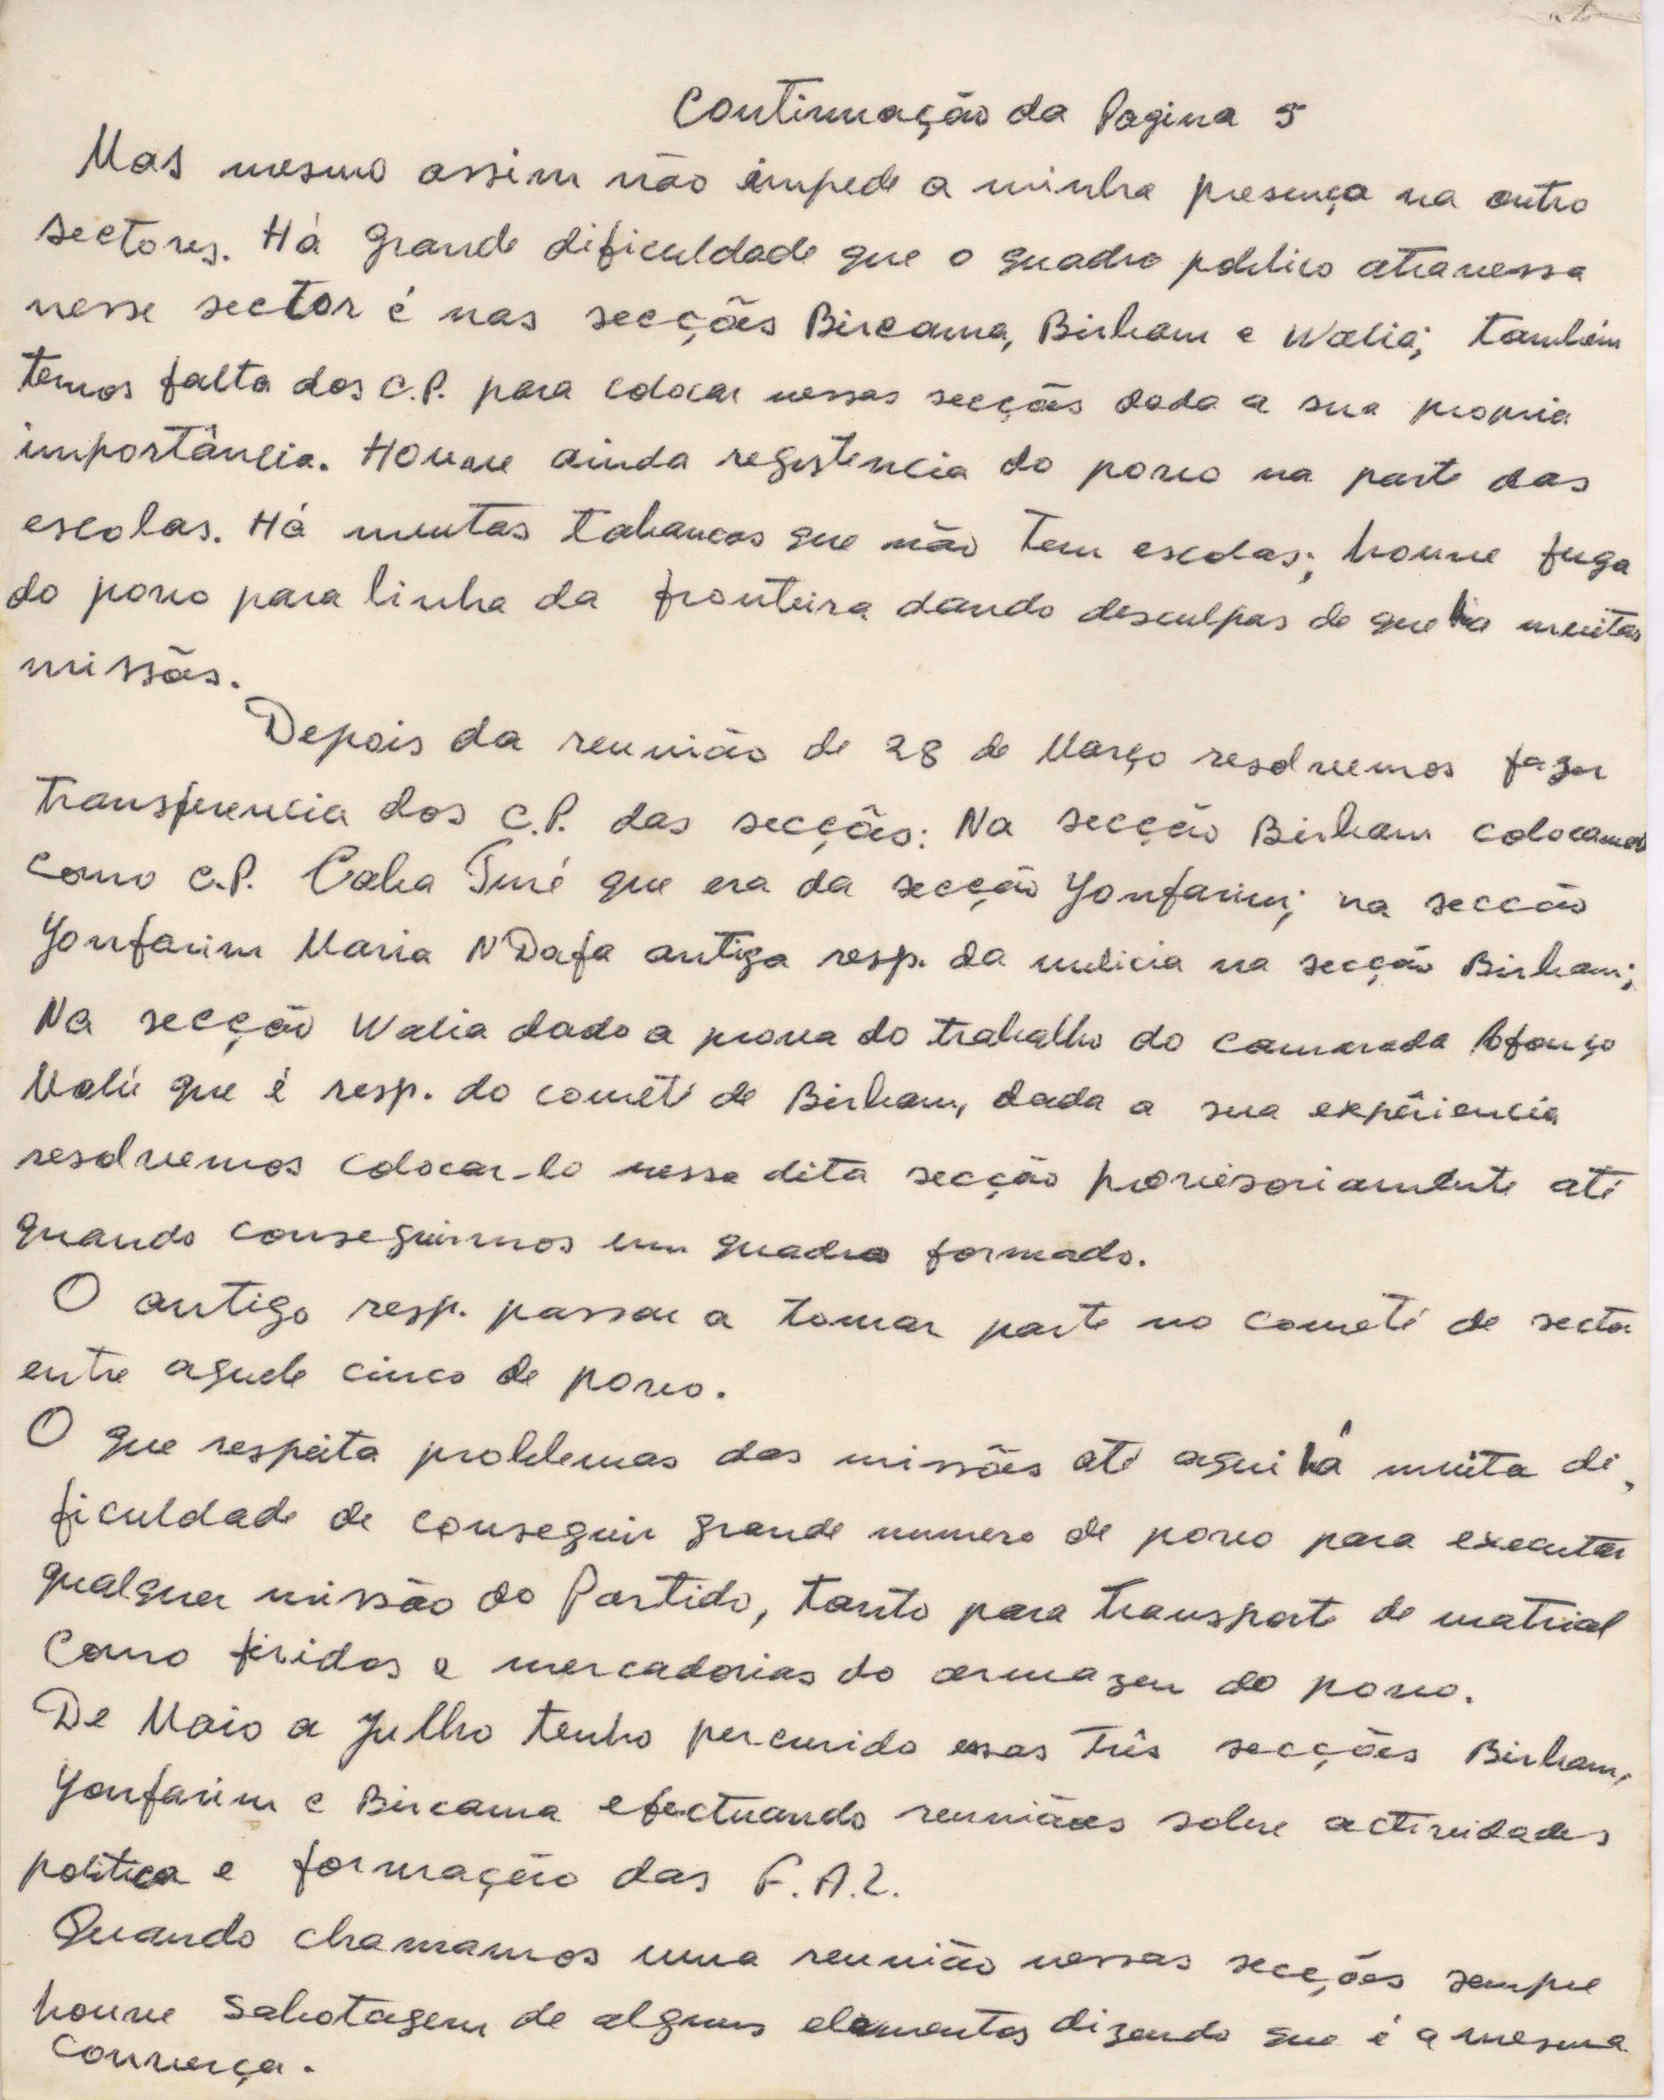 Continuação da Pagina 5
Mas mesmo assim não impede a minha presença na outro
sectores. Há grande dificuldade que o quadro politico atravessa
nesse sector é nas secções Bircama, Birham e Walia; também
temos falta dos C.P. para colocar nessas secções dada a sua propria
importância. Houve ainda registencia do povo na parte das
escolas. Há muntas tabancas que não tem escolas; houve fuga
do povo para linha da fronteira dando desculpas de que ha muitas
missãs.
Depois da reunião de 28 de Março resolvemos fazer
transferencia dos C.P. das secçãs: Na secção Birham colocamos
como C.P. Caba Turé que era da secção Yonfarim; na seccão
Yonfarim Maria N'Dafa antiga resp. da milicia na secção Birham;
Na secção Walia dado a prova do trabalho do camarada Afonço
Malú que é resp. do cometé de Birham, dada a sua expêriencia
resolvemos colocar-lo nessa dita secção proviesoriamente até
quando conseguirmos um quadro formado.
O antigo resp. passou a tomar parte no cometé de sector
entre aquele cinco de povo.
O que respeita problemas das missões até aqui há muita di,
ficuldade de conseguir grande numero de povo para executar
qualquer missão do Partido, tanto para transporte de matrial
como firidos e mercadorias do armazen do povo.
De Maio a Julho tenho percurido essas três secções Birham,
Yonfarim e Bircama efectuando reuniães sobre actividades
politica e formação das F.A.L.
Quando chamamos uma reunião nessas secções sempre
houve sabotagem de alguns elementos dizendo que é a mesma
converça.